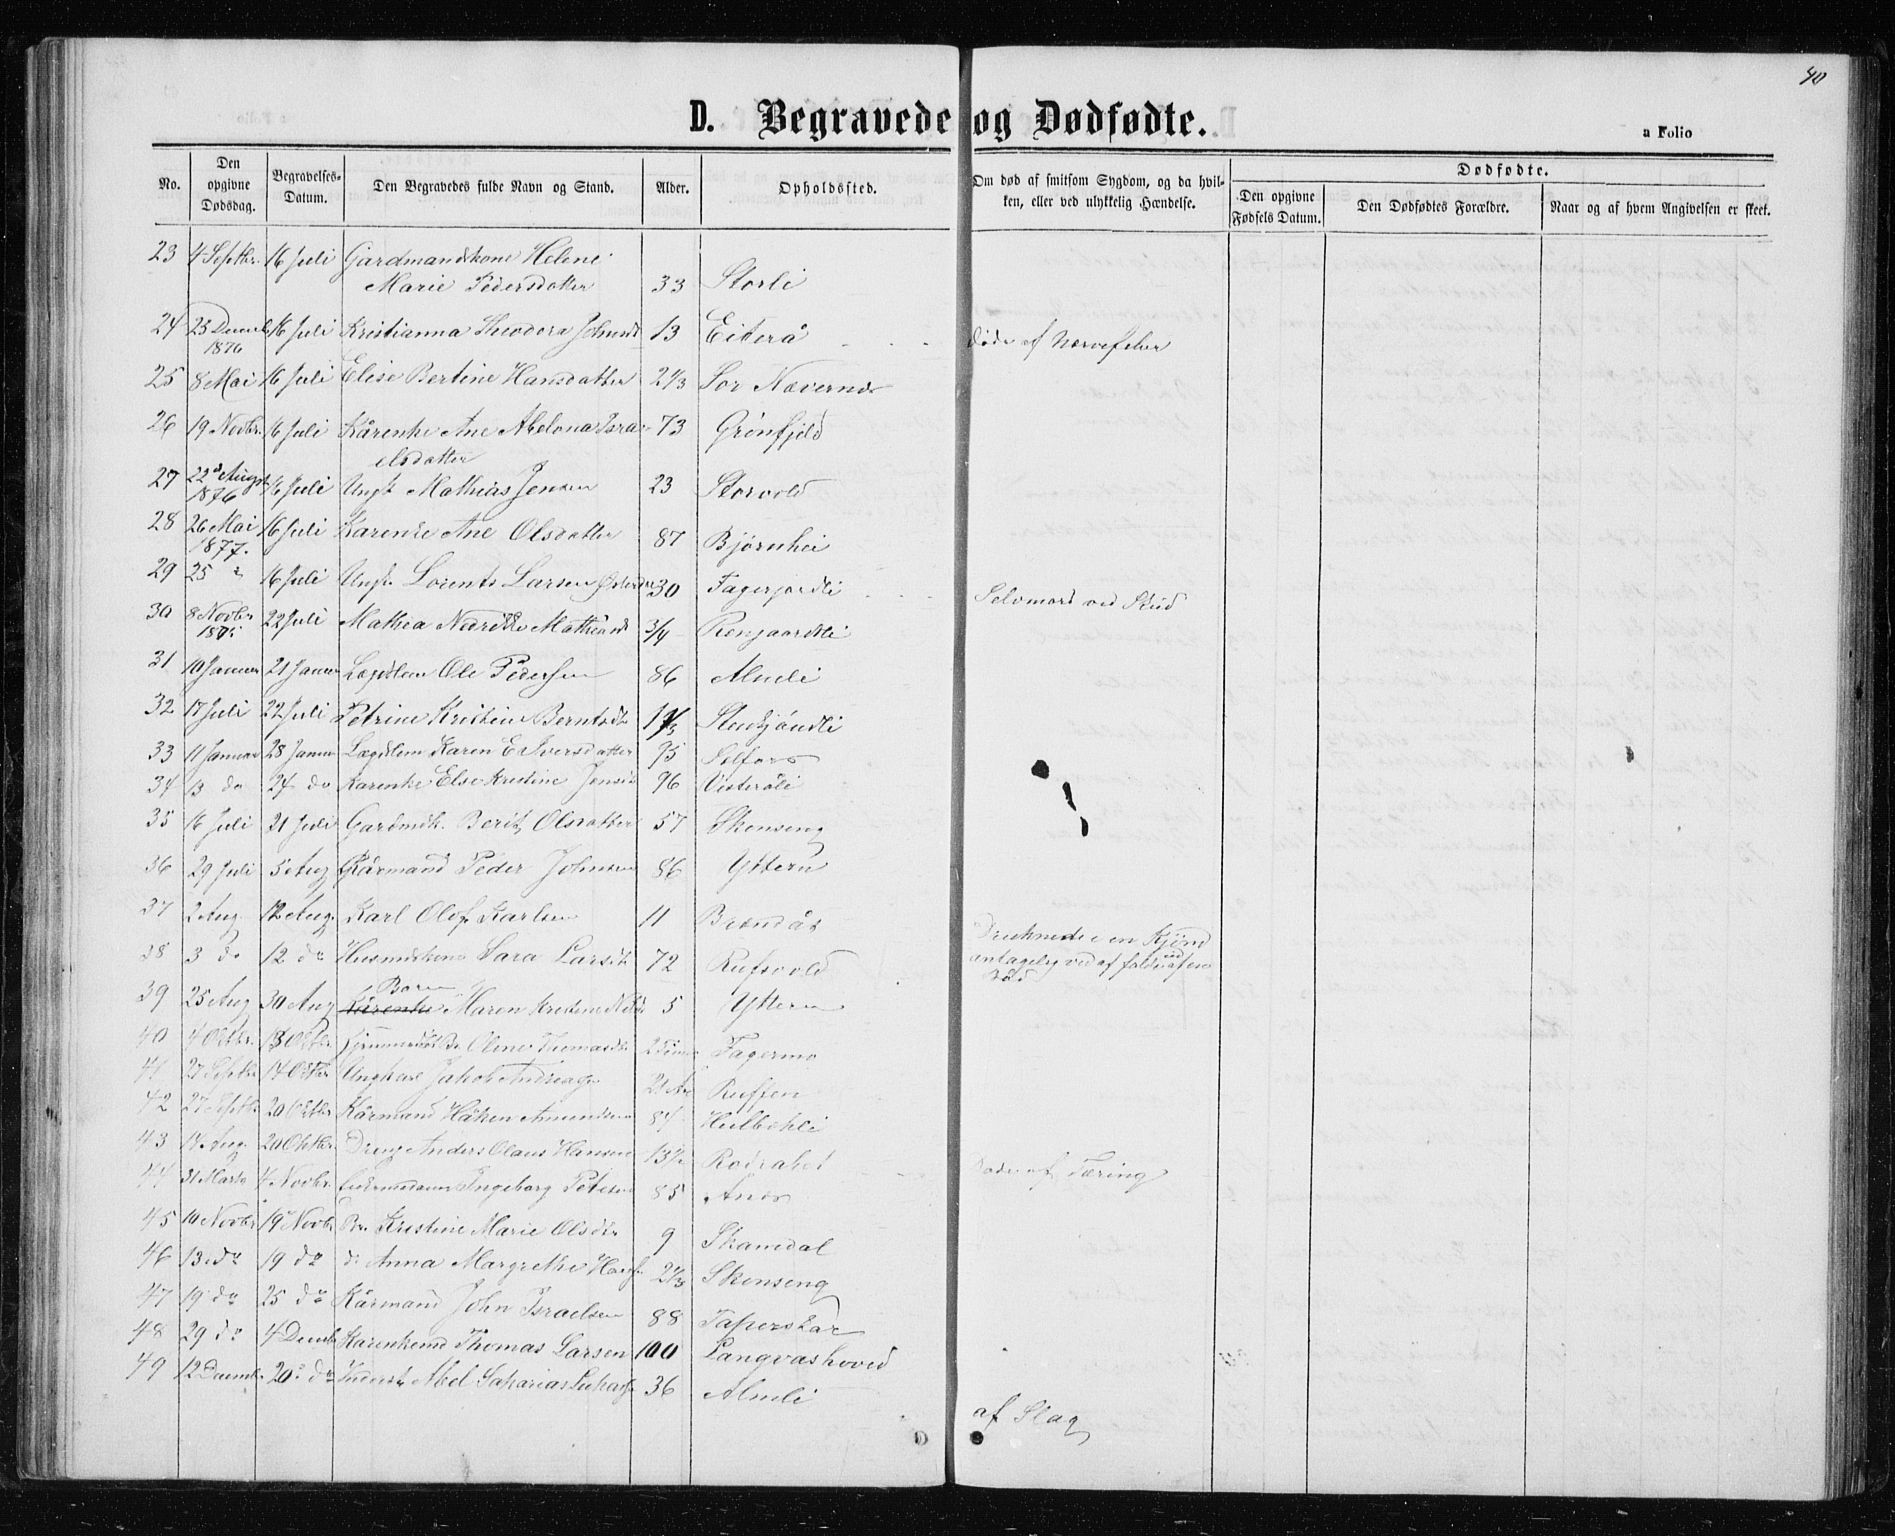 40
D. Begravede og Dødfødte.
a Folio
No.
Den opgivne Dødsdag.
Begravelses-Datum.
Den Begravedes fulde Navn og Stand.
Alder.
Opholdssted.
Om død af smitsom Sygdom, og da hvilken, eller ved ulykkelig Hændelse.
Dødfødte.
Den opgivne Fødsels Datum.
Den Dødfødtes Forældre.
Naar og af hvem Angivelsen er skeet.
23 4 Septbr. 16 Juli Gardmandskone Helene
Marie Pedersdatter 33 Storli
24 23 Decemb 16 Juli Kristianna Theodora 13 Eiterå Døde af Nervefeber
1876
25 8 Mai 16 Juli Elise Bertine Hansdatter 2 1/3 Sør Nævernæs
26 19 Novbr. 16 Juli Kårenke Ane Abelona Isra- 73 Grønfjeld
elsdatter
27 22d August 16 Juli Ungk Mathias Jensen 23 Storvold
1876
28 26 Mai 16 Juli Karenke Ane Olsdatter 87 Bjørnhei
1877.
29 25 " 16 Juli Ungk. Lorents Larsen 30 Fagerjordli Selvmord ved Skud
30 8 Novbr 22 Juli Mathea 3/4 Rengaardsli
31 10 Januar 21 Januar Lægdslem Ole Pedersen 86 Almli
32 17 Juli 22 Juli Petrine Kristine Berntsdt 1 1/3
33 11 Januar 28 Januar Lægdslem Karen E Iversdatter 95 Selfors
34 13 do 24 do Karenke Else Kristine Jensdt 96 Vesteråli
35 16 Juli 21 Juli Gardmdk. Berit Olsdatter 57 Skonseng
36 29 Juli 5 Aug Kårmand Peder Johnsen 86 Yttern
37 2 Aug 12 Aug. Karl Olof Karlsen 11 Brændås Druknede i en Kjønd
38 3 do 12 do Husmdskone Sara Larsdt 72 Rufsvold antagelig ved af falde ud af en
Båd
Barn
39 25 Aug 30 Aug Kårenke Maren Kristine 5 Yttern
40 4 Oktbr. 13 Oktbr. Olene Thomasdtr Fagermo
41 27 Septbr 14 Oktbr Ungkarl Jakob Andreas Ruffen
42 27 Septbr 20 Oktbr Kårmand Håken Amundsen 84
43 14 Aug. 20 Oktbr. Dreng Anders Olaus Hansen 13 1/2
44 31 Marts 4 Novbr. Ingeborg 85 Døde af Tæring
45 10 Novbr 19 Novbr Kristine Marie Olsdtr 9 Skamdal
46 13 do 19 do Anna Margrethe 2 1/3 Skonseng
47 19 do 25 do Kårmand John Israelsen 88
48 29 do 4 Decmb Karenkemd Thomas Larsen 100
49 12 Decmb. 20 do Inderst Abel Sakarias 36 Almli af Slag